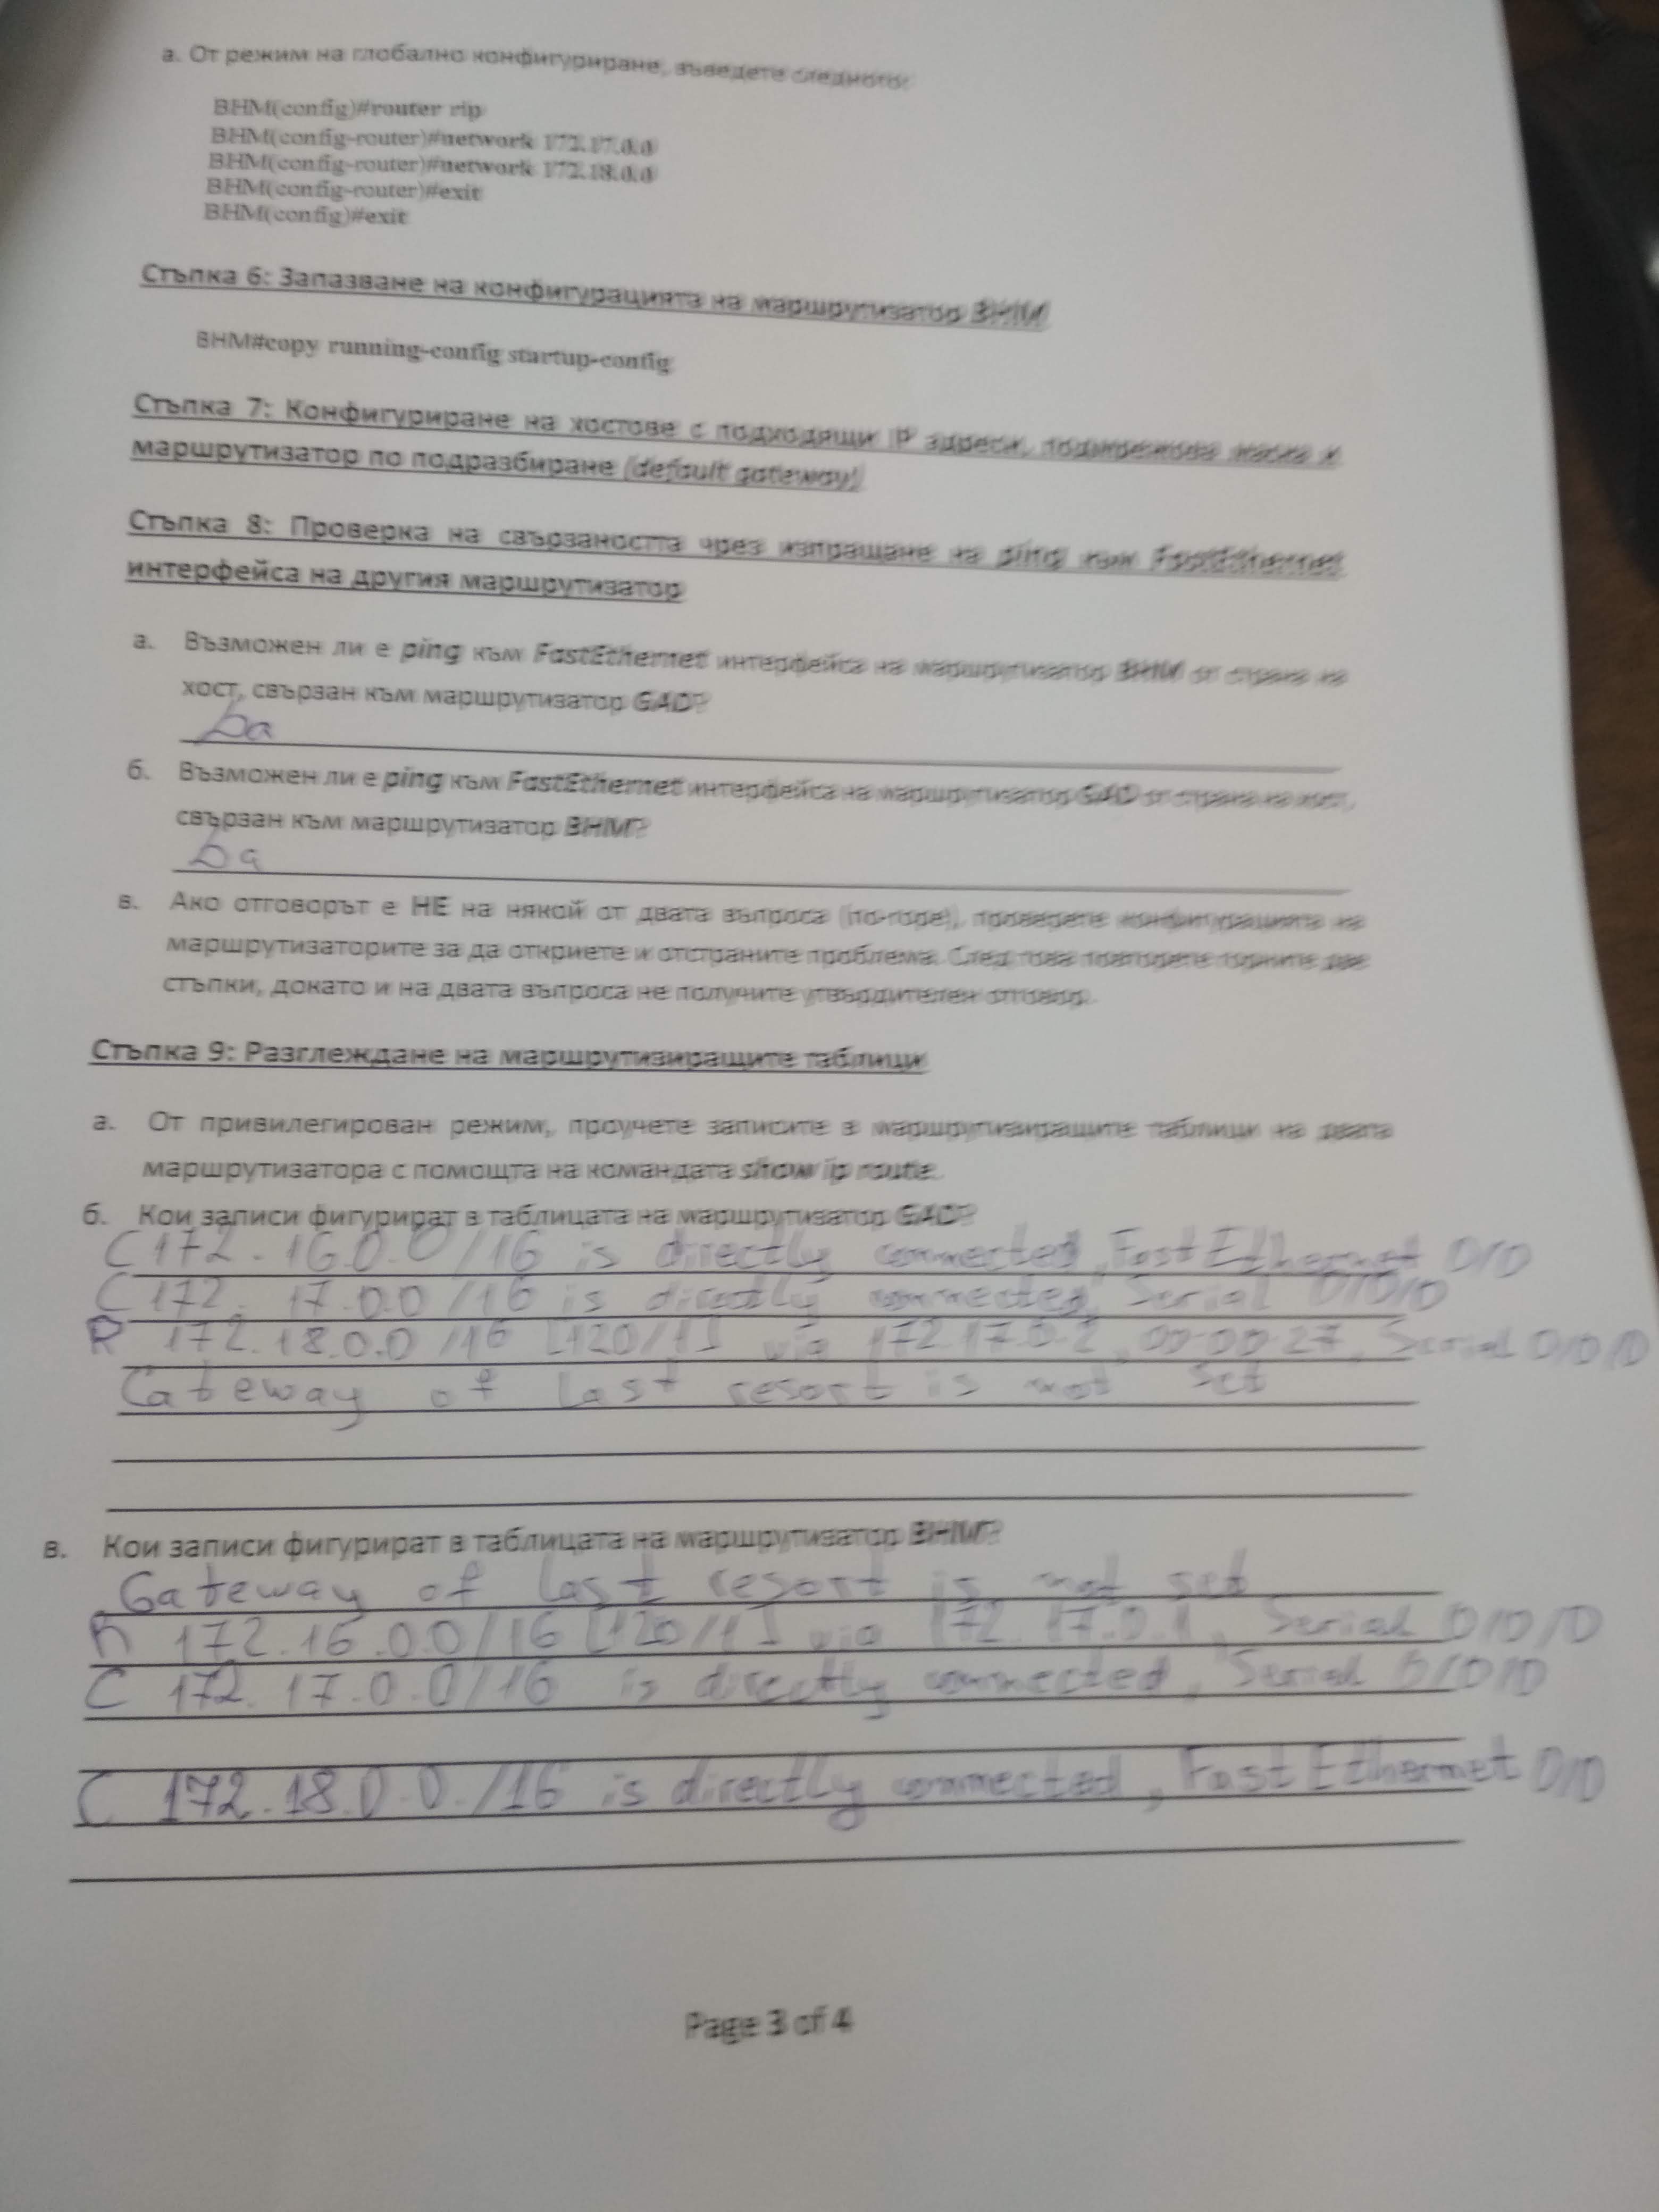 а. От режим на глобално конфигуриране, въведете следното:
BHM(config)#router rip
BHM(config-router)#network 172.17.0.0
BHM(config-router)#network 172.18.0.0
BHM(config-router)#exit
BHM(config)#exit
Стъпка 6: Запазване на конфигурацията на маршрутизатор BHM
BHM#copy running-config startup-config
Стъпка 7: Конфигуриране на хостове с подходящи IP адреси, подмрежова маска и
маршрутизатор по подразбиране (default gateway)
Стъпка 8: Проверка на свързаността чрез изпращане на ping към FastEthernet
интерфейса на другия маршрутизатор
а. Възможен ли е ping към FastEthernet интерфейса на маршрутизатор BHM от страна на
хост, свързан към маршрутизатор GAD?
Da
б. Възможен ли е ping към FastEthernet интерфейса на маршрутизатор GAD от страна на хост,
свързан към маршрутизатор BHM?
Da
в. Ако отговорът е НЕ на някой от двата въпроса (по-горе), проверете конфигурацията на
маршрутизаторите за да откриете и отстраните проблема. След това повторете горните две
стъпки, докато и на двата въпроса не получите утвърдителен отговор.
Стъпка 9: Разглеждане на маршрутизиращите таблици
а. От привилегирован режим, проучете записите в маршрутизиращите таблици на двата
маршрутизатора с помощта на командата show ip route.
б. Кои записи фигурират в таблицата на маршрутизатор GAD?
C 172.16.0.0/16 is directly connected, FastEthernet 0/0
C 172.17.0.0/16 is directly connected, Serial 0/0/0
R 172.18.0.0/16 [120/1] via 172.17.0.2, 00:00:27, Serial 0/0/0
Gateway of last resort is not set
в. Кои записи фигурират в таблицата на маршрутизатор BHM?
Gateway of last resort is not set
R 172.16.0.0/16 [120/1] via 172.17.0.1, Serial 0/0/0
C 172.17.0.0/16 is directly connected, Serial 0/0/0
C 172.18.0.0/16 is directly connected, FastEthernet 0/0
Page 3 of 4